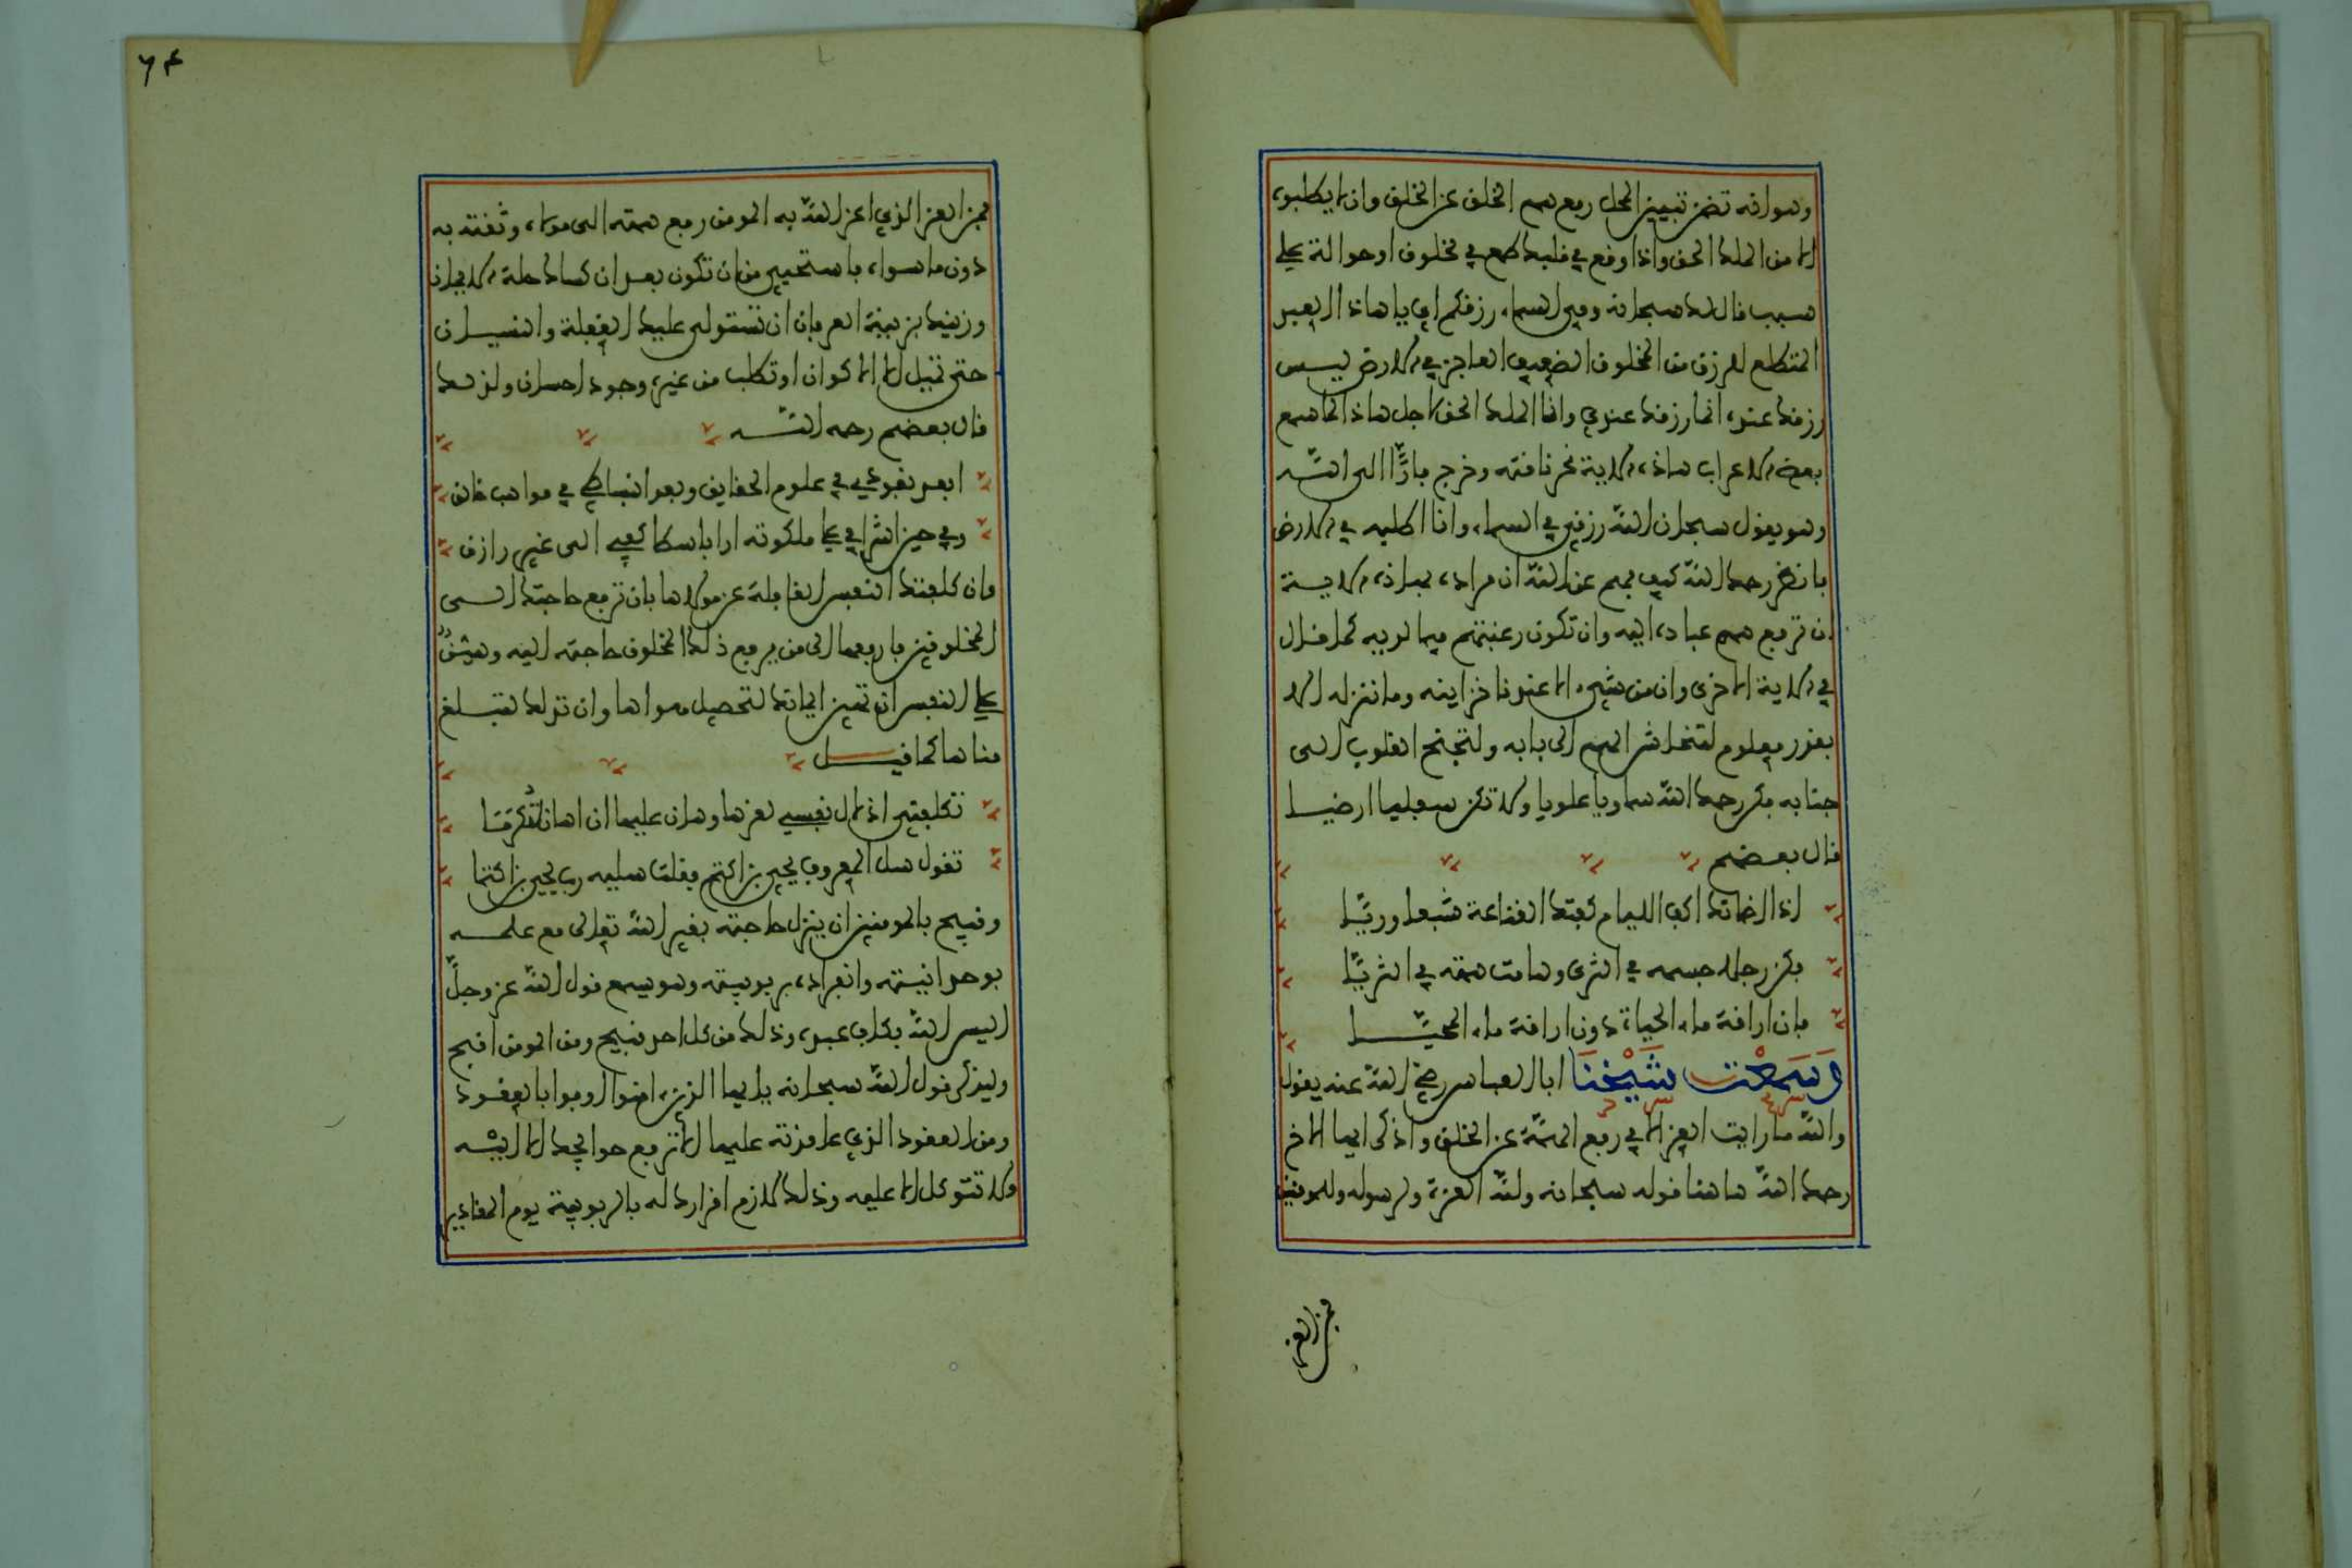 وهو انه تضمن تبيين المحل رفع همم الخلق عن الخلق وان لا يطلبوه
الا من الملك الحق واذا وقع في قلبك طمع في مخلوق او حوالة على
سبب قال لك سبحانه وفي السماء رزقكم اي يا هاذا العبد
المتطلع للرزق من المخلوق الضعيف العاجز في الارض ليس
رزقك عنده انما رزقك عندي وانا الملك الحق لاجل هاذا لما سمع
بعض الاعراب هاذه الاية نحر ناقته وخرج فارًّا الى الله
وهو يقول سبحان الله رزقي في السماء وانا اطلبه في الارض
فانظر رحمك الله كيف فهم عن الله ان مراده بهاذه الاية
ان ترفع همم عباده اليه وان تكون رغبتهم فيما لديه كما قال
في الاية الاخرى وان من شيء الا عندنا خزاينه وما ننزله الا
بقدر معلوم لتنحاش الهمم الى بابه ولتجنح القلوب الى
جنابه فكن رحمك الله سماويا علويا ولا تكن سفليا ارضيا
قال بعضهم
اذا اظماتك اكف الليام كفتك القناعة شبعا وريّا
فكن رجلا جسمه في الثرى وهامت همته في الثريّا
فان اراقة ماء الحياة دون اراقة ماء المحيّا
وَسَمِعْت شَيْخَنَا ابا العباس رضي الله عنه يقول
والله ما رايت العز الا في رفع الهمّة عن الخلق واذكر ايها الاخ
رحمك الله هاهنا قوله سبحانه ولله العزة ولرسوله وللمومنين
فمن العز
٦٤
فمن العز الذي اعز الله به المومن رفع همته الى مولاه وثقته به
دون ما سواه فاستحيي من ان تكون بعد ان كساك حلة الايمان
وزينك بزينة العرفان ان تستولي عليك الغفلة والنسيان
حتى تميل الى الاكوان او تطلب من غيره وجود احسان ولذلك
قال بعضهم رحمه الله
ابعد نفوذي في علوم الحقايق وبعد انبساطي في مواهب خالق
وفي حين اشرافي على ملكوته ارا باسطا كفي الى غير رازق
وان كلفتك النفس الغافلة عن مولاها بان ترفع حاجتك الى
المخلوقين فارفعها الى من يرفع ذلك المخلوق حاجته اليه وهيّنٌ
على النفس ان تهين ايمانك لتحصيل هواها وان تذلك لتبلغ
مناها كما قيل
تكلفني اذلال نفسي لعزها وهان عليها ان اهان لتُكرمَا
تقول سل المعروف يحيى بن اكثم فقلت سليه رب يحيى بن اكثما
وقبيح بالمومنين ان ينزل حاجته بغير الله تعالى مع علمه
بوحدانيته وانفراده بربوبيته وهو يسمع قول الله عز وجلّ
اليس الله بكاف عبده وذلك من كل احد قبيح ومن المومن اقبح
وليذكر قول الله سبحانه يا ايها الذين امنوا اوفوا بالعقود
ومن العقود الذي عاقدته عليها الا ترفع حوايجك الا اليْه
ولا تتوكل الا عليه وذلك لازم اقرارك له بالربوبية يوم المقادير